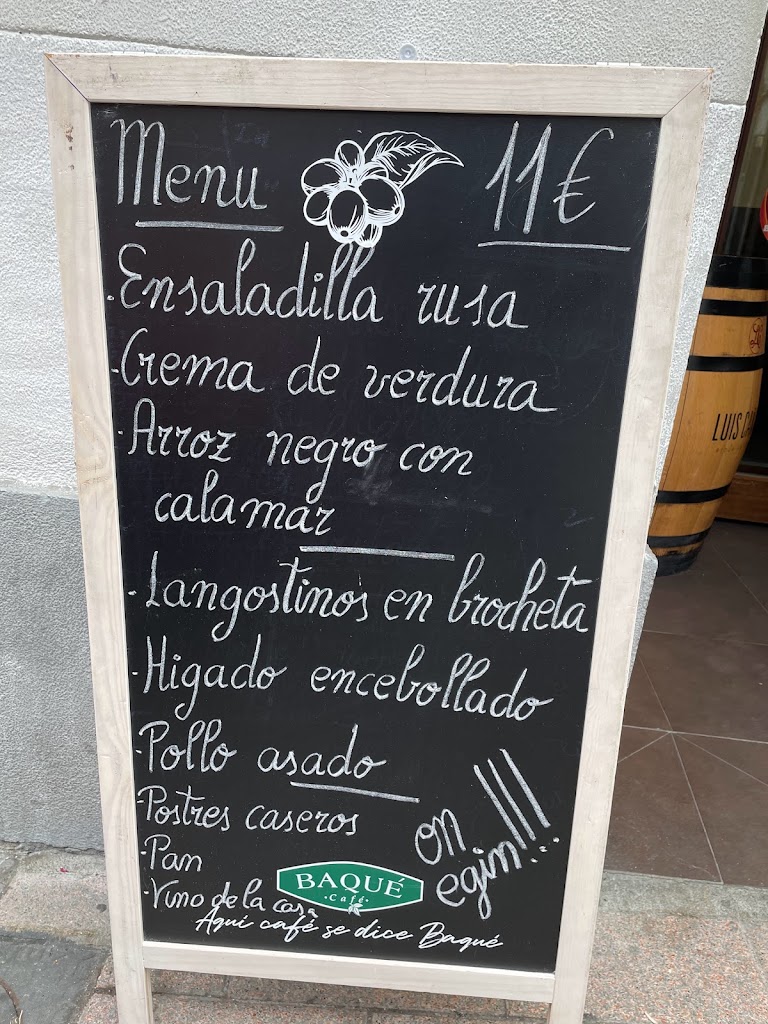 Menu 11€
·Ensaladilla rusa
·Crema de verdura
·Arroz negro con
calamar
·Langostinos en brocheta
·Higado encebollado
·Pollo asado
·Postres caseros
·Pan
·Vino de la casa
on
egin!!!
BAQUÉ
·Café·
Aquí café se dice Baqué
LUIS